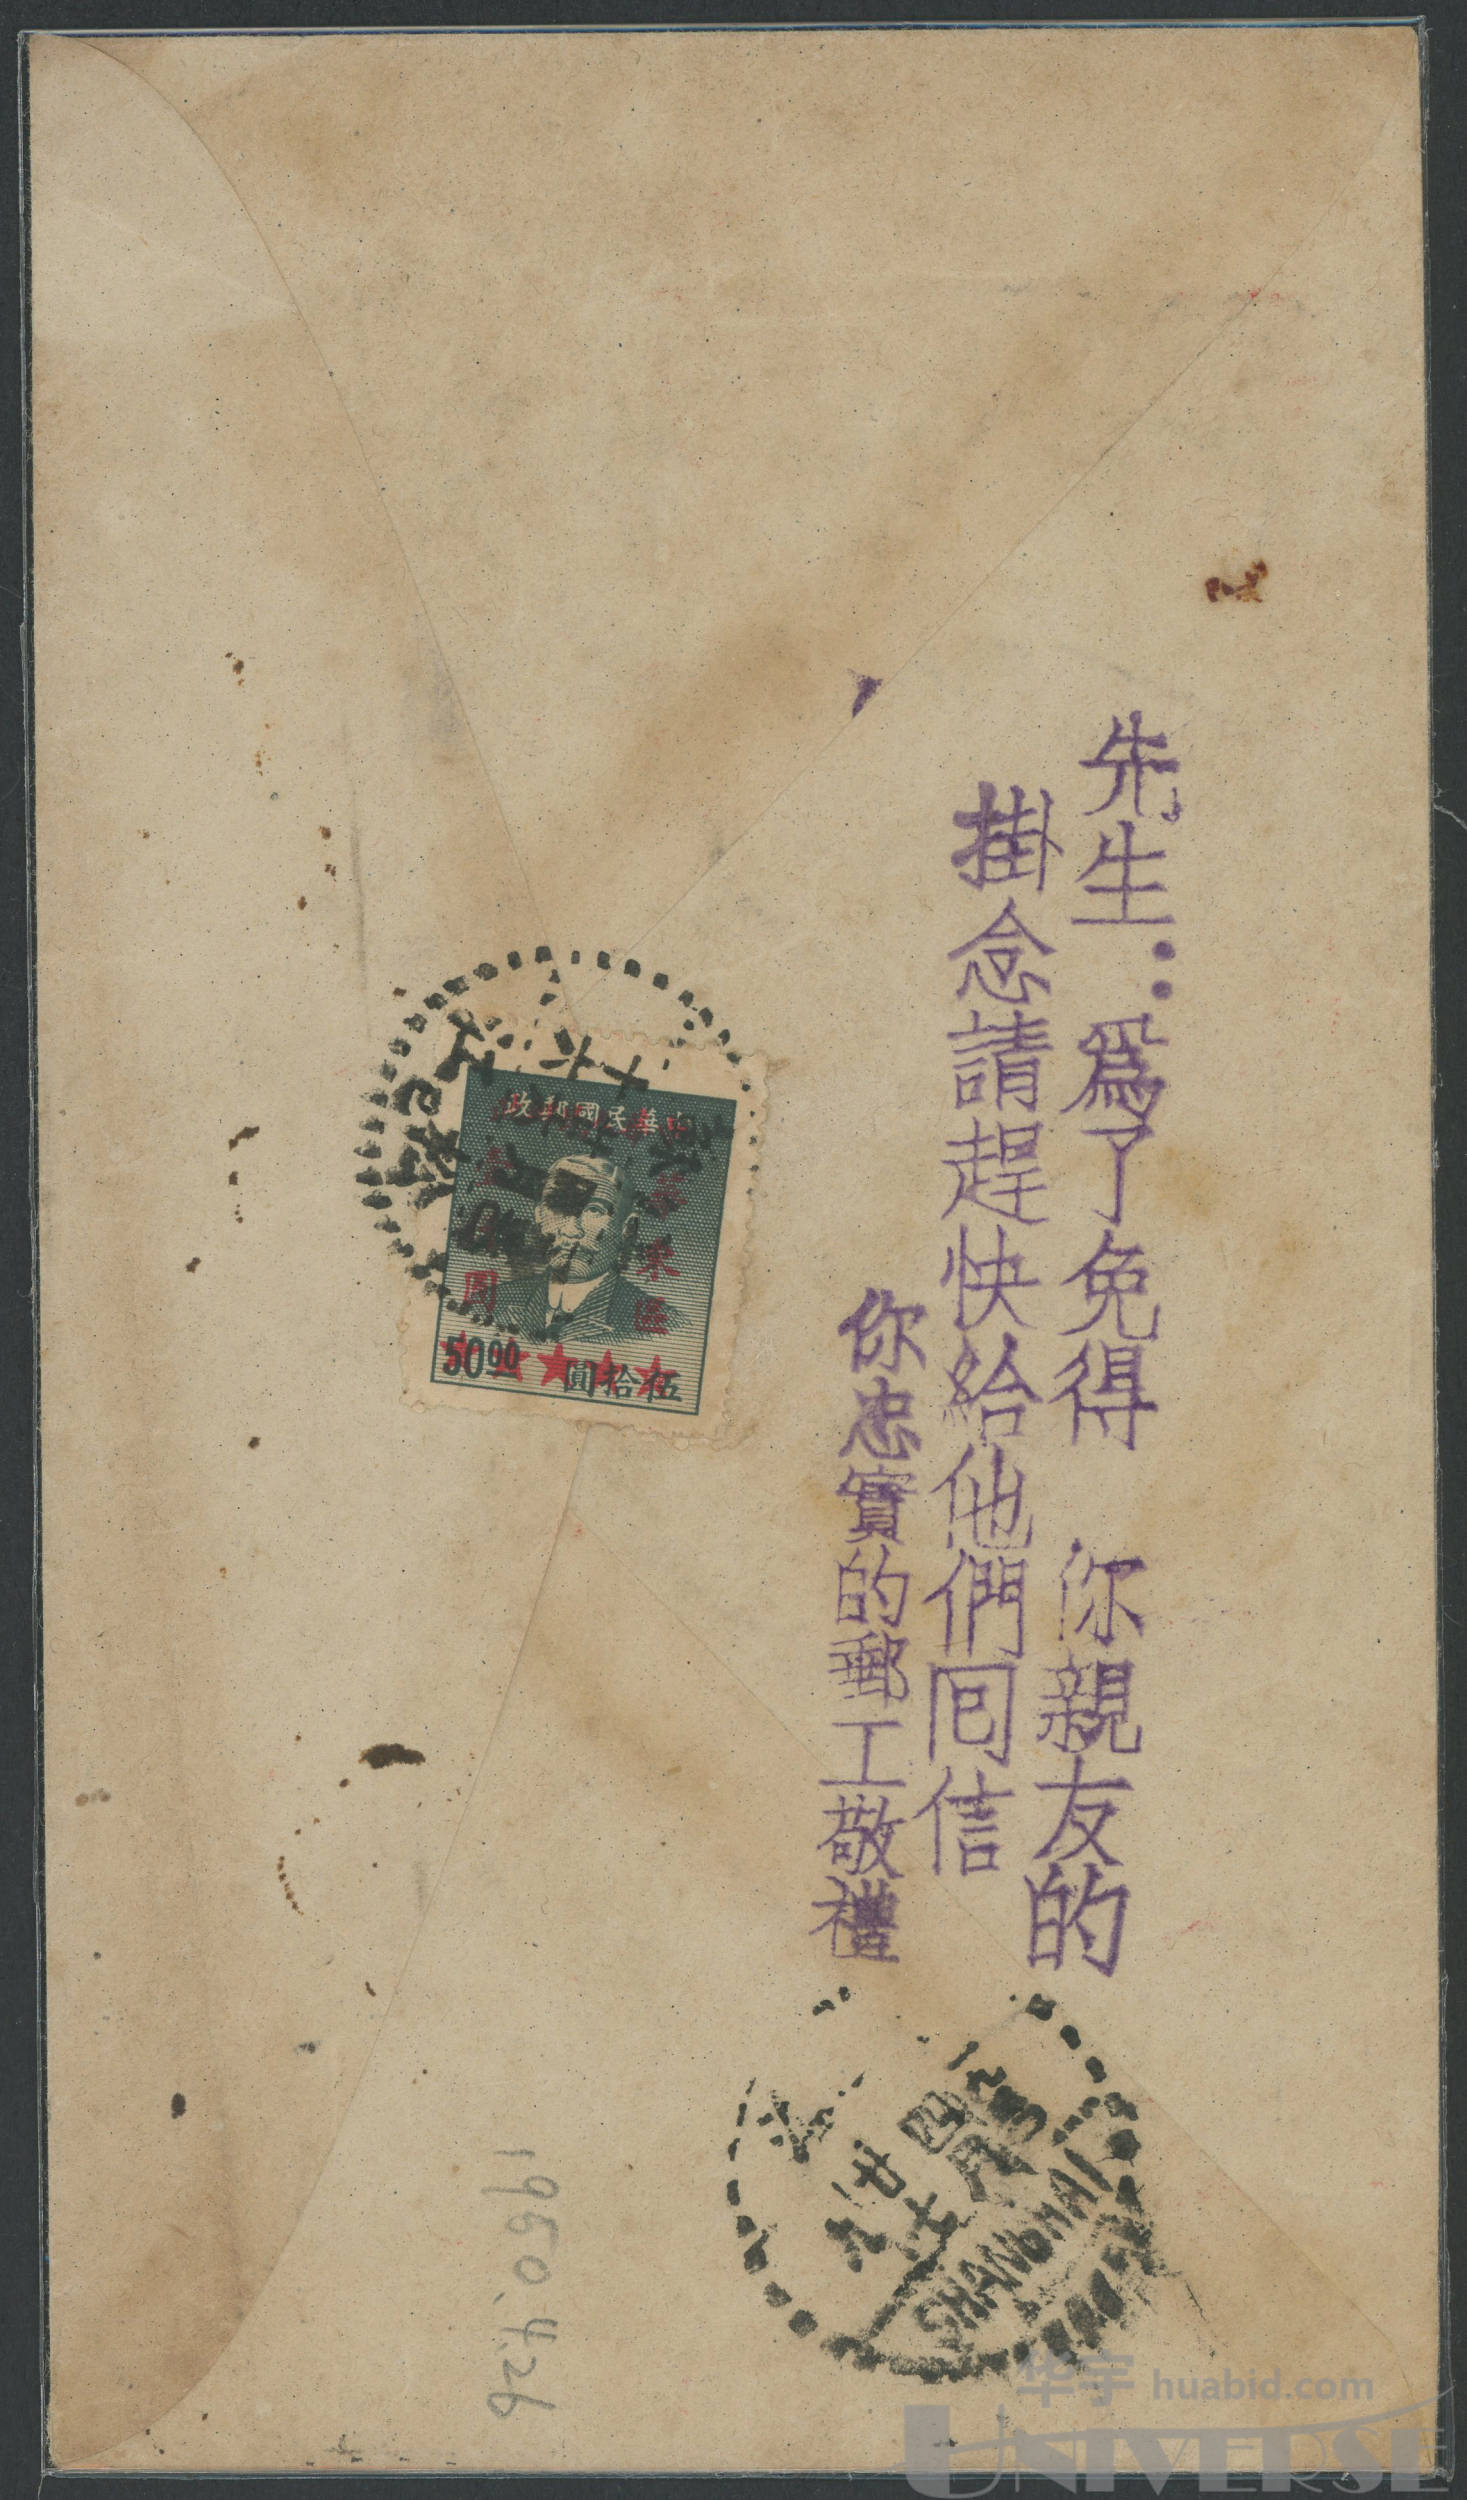 先生：爲了免得　你親友的
掛念請趕快給他們囘信
你忠實的郵工敬禮
中華民國郵政
東區
圓
50 00
伍拾圓
上海
四月
廿七
SHANGHAI
1950.4.26
华宇 huabid.com
UNIVERSE